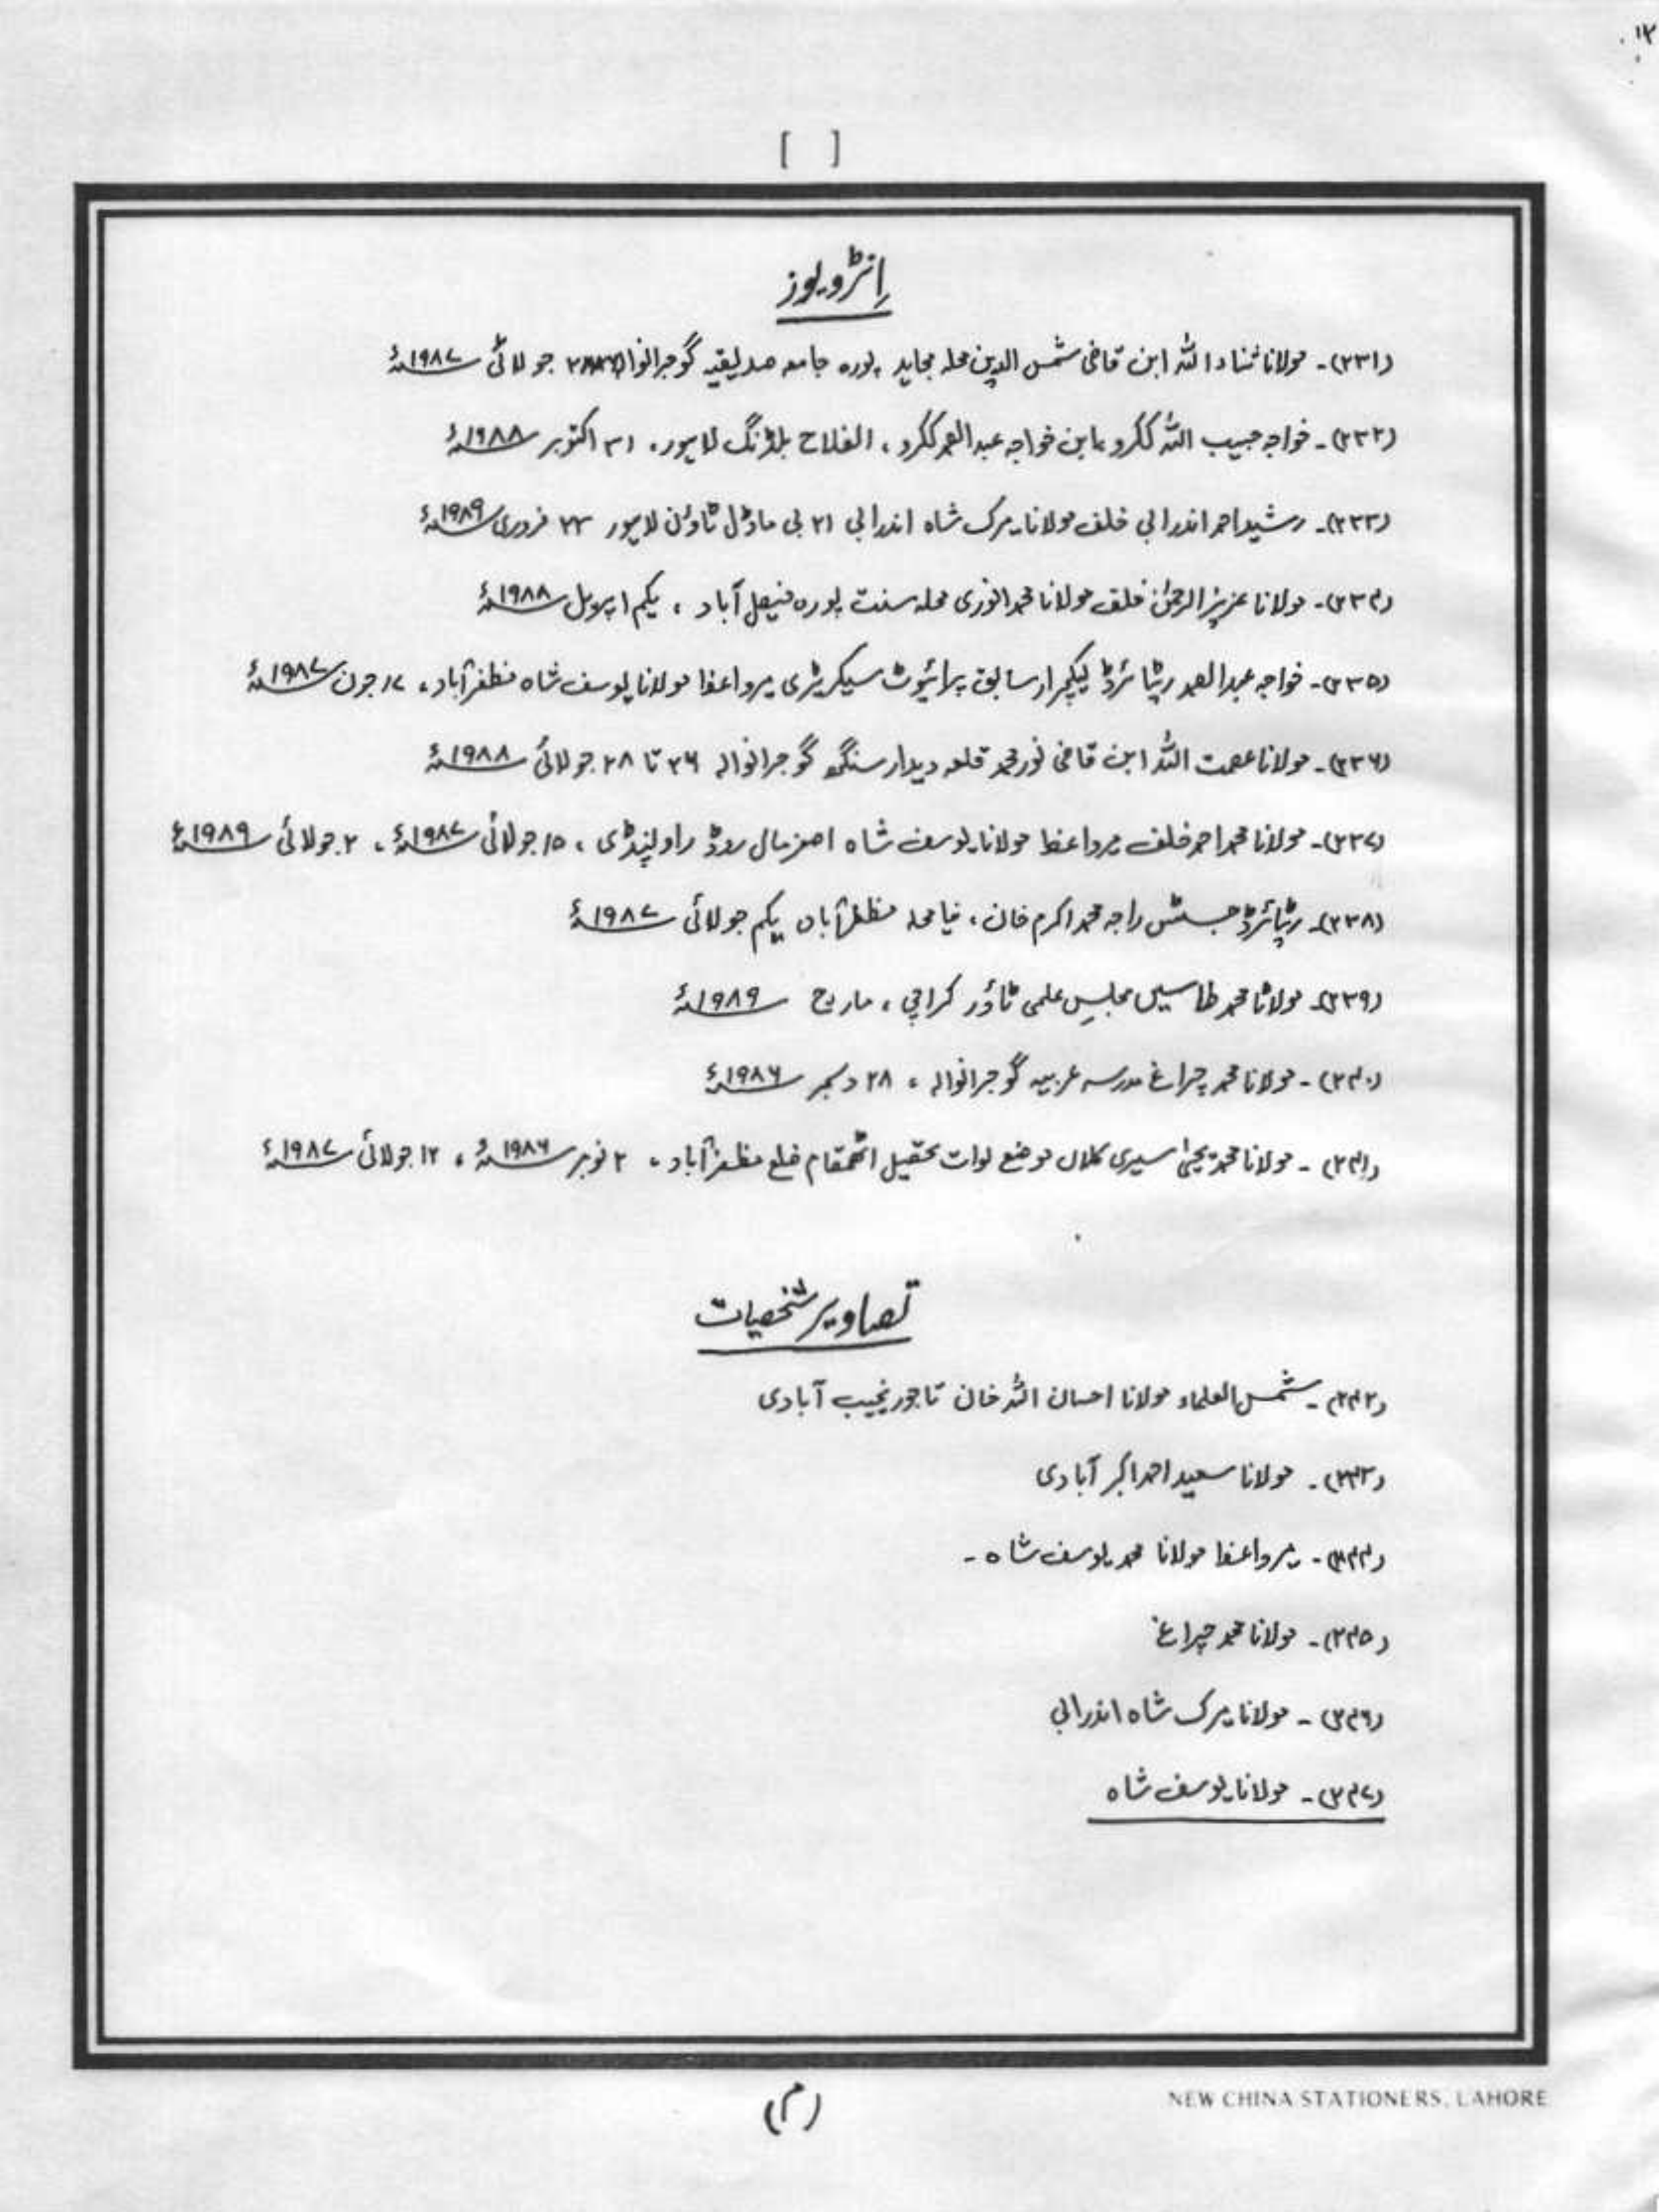 [ ]
اِنٹرویوز
(۲۳۱)۔ مولانا ثناء اللہ ابن قاضی شمس الدین محلہ مجاہد پورہ جامعہ صدیقیہ گوجرانوالہ جولائی ۱۹۸۷ء
(۲۳۲)۔ خواجہ حبیب اللہ ککرو ابن خواجہ عبدالصمد ککرو، الفلاح بلڈنگ لاہور، ۳۱ اکتوبر ۱۹۸۸ء
(۲۳۳)۔ رشید احمد اندرابی خلف مولانا میرک شاہ اندرابی ۲۱ بی ماڈل ٹاؤن لاہور ۲۳ فروری ۱۹۸۹ء
(۲۳۴)۔ مولانا عزیز الرحمٰن خلف مولانا محمد انوری محلہ سنت پورہ فیصل آباد، یکم اپریل ۱۹۸۸ء
(۲۳۵)۔ خواجہ عبدالصمد ریٹائرڈ لیکچرار سابق پرائیوٹ سیکریٹری میرواعظ مولانا یوسف شاہ مظفرآباد، ۱۷ جون ۱۹۸۷ء
(۲۳۶)۔ مولانا عصمت اللہ ابن قاضی نور محمد قلعہ دیدار سنگھ گوجرانوالہ ۲۶ تا ۲۸ جولائی ۱۹۸۸ء
(۲۳۷)۔ مولانا محمد احمد خلف میرواعظ مولانا یوسف شاہ اصغر مال روڈ راولپنڈی، ۱۵ جولائی ۱۹۸۷ء، ۲ جولائی ۱۹۸۹ء
(۲۳۸)۔ ریٹائرڈ جسٹس راجہ محمد اکرم خان، نیا محلہ مظفرآباد یکم جولائی ۱۹۸۷ء
(۲۳۹)۔ مولانا محمد طاسین مجلسِ علمی ٹاؤر کراچی، مارچ ۱۹۸۹ء
(۲۴۰)۔ مولانا محمد چراغ مدرسہ عربیہ گوجرانوالہ، ۲۸ دسمبر ۱۹۸۶ء
(۲۴۱)۔ مولانا محمد یحیٰ سیری کلاں موضع لوات تحصیل اٹھمقام ضلع مظفرآباد، ۲ نومبر ۱۹۸۶ء، ۱۲ جولائی ۱۹۸۷ء
تصاویر شخصیات
(۲۴۲)۔ شمس العلماء مولانا احسان اللہ خان تاجور نجیب آبادی
(۲۴۳)۔ مولانا سعید احمد اکبر آبادی
(۲۴۴)۔ میرواعظ مولانا محمد یوسف شاہ۔
(۲۴۵)۔ مولانا محمد چراغ
(۲۴۶)۔ مولانا میرک شاہ اندرابی
(۲۴۷)۔ مولانا یوسف شاہ
NEW CHINA STATIONERS, LAHORE
(م)